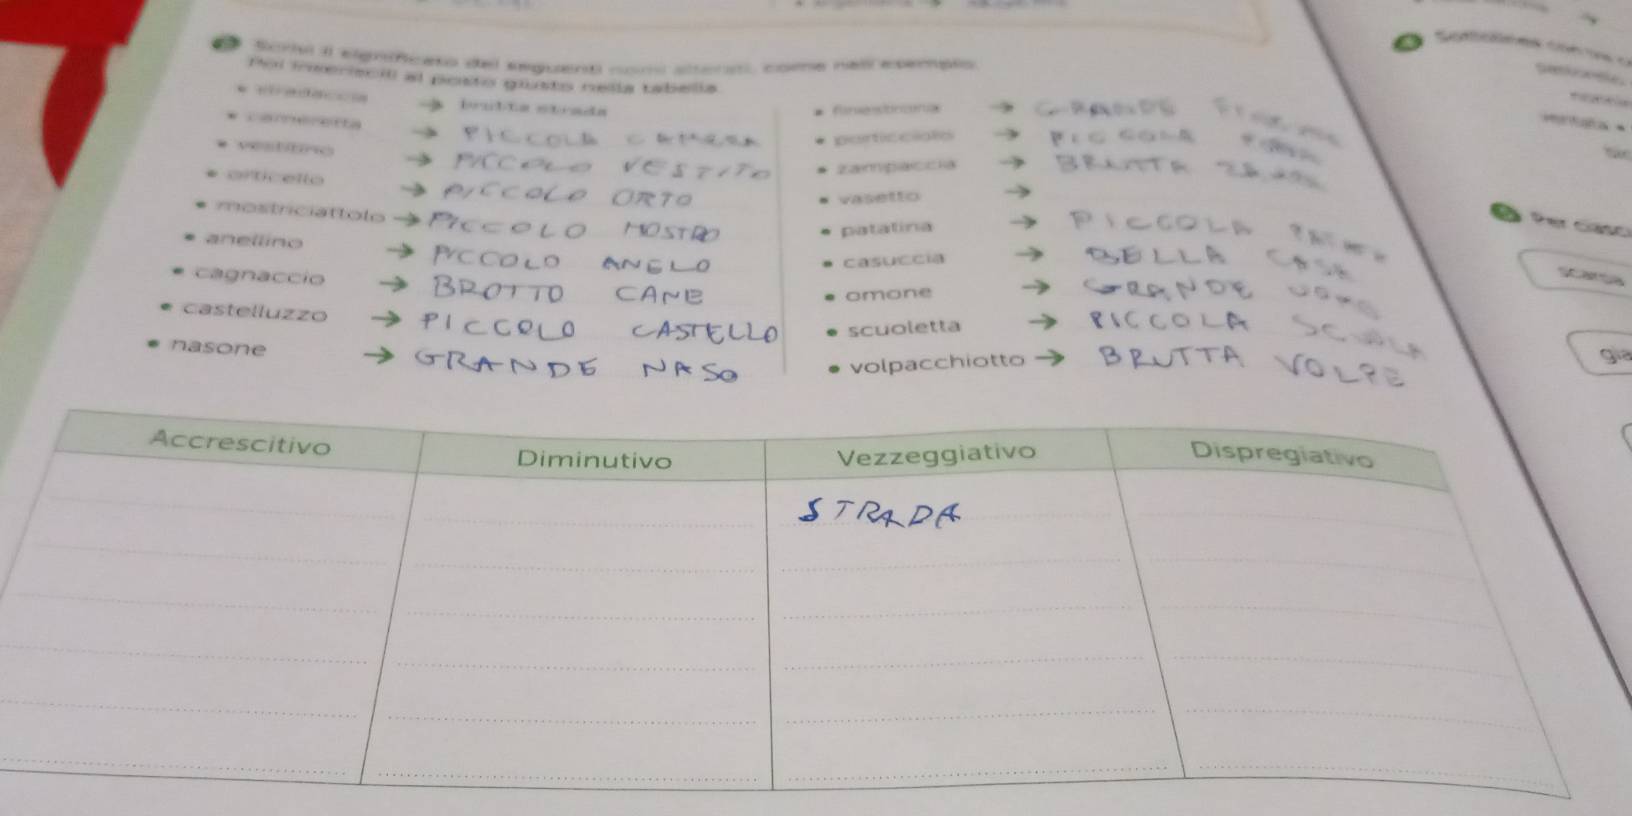 Scrivi il significato dei seguenti nomi alterati, come nell'esempio.
Poi inseriscili al posto giusto nella tabella.
• stradaccia → brutta strada
• cameretta → PICCOLA CAMERA
• vestitino → PICCOLO VESTITO
• orticello → PICCOLO ORTO
• mostriciattolo → PICCOLO MOSTRO
• anellino → PICCOLO ANELO
• cagnaccio → BROTTO CANE
• castelluzzo → PICCOLO CASTELLO
• nasone → GRANDE NASO
• finestrona → GRANDE
• porticciolo → PICCOLA
• zampaccia → BRUTTA
• vasetto →
• patatina → PICCOLA
• casuccia → BELLA CASA
• omone → GRANDE UOMO
• scuoletta → PICCOLA SCUOLA
• volpacchiotto → BRUTTA VOLPE
Accrescitivo Diminutivo Vezzeggiativo Dispregiativo
STRADA
Per
gia